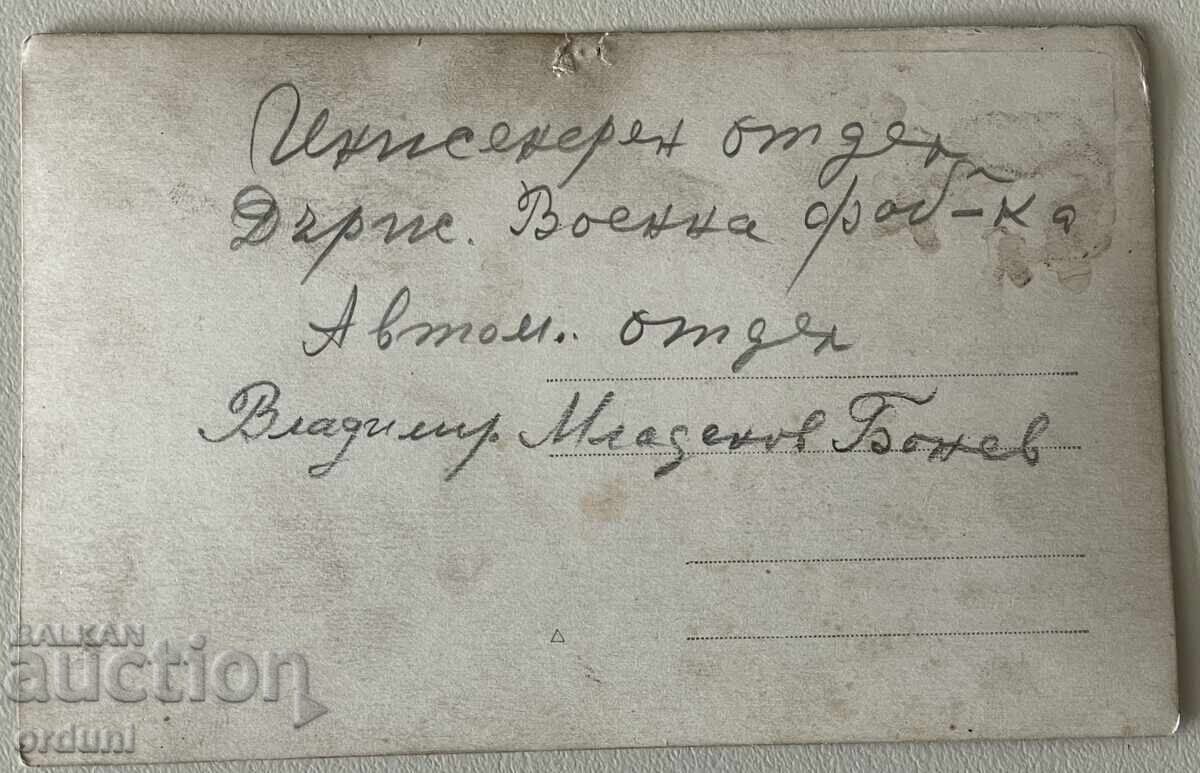 Инженерен отдел
Държ. Военна фаб-ка
Автом. отдел
Владимир Младенов Бонев
BALKAN
auction
orduni